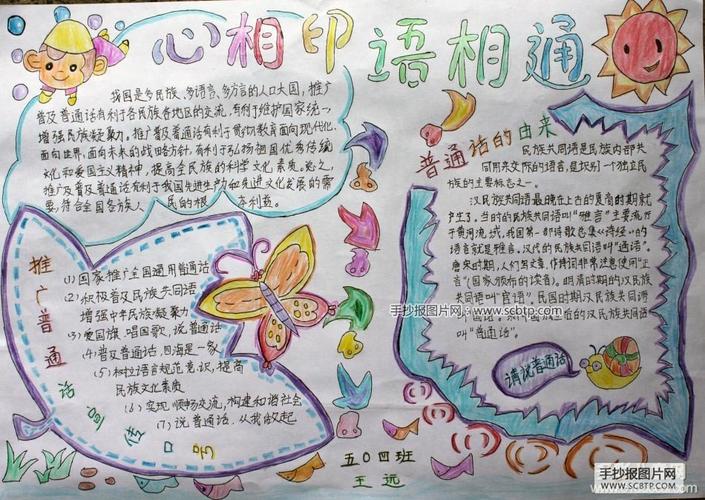 心相印 语相通
我国是多民族、多语言、多方言的人口大国，推广
普及普通话有利于各民族各地区的交流，有利于维护国家统一
增强民族凝聚力。推广普及普通话有利于贯彻教育面向现代化，
面向世界，面向未来的战略方针，有利于弘扬祖国优秀传统
文化和爱国主义精神，提高全民族的科学文化素质。总之，
推广及普及普通话有利于我国先进生产力和先进文化发展的需
要，符合全国各族人民的根本利益。
推广普通话宣传口号
(1)国家推广全国通用普通话
(2)积极普及民族共同语
增强中华民族凝聚力
(3)爱国旗、唱国歌、说普通话
(4)普及普通话，四海是一家
(5)树立语言规范意识，提高
民族文化素质
(6)实现顺畅交流，构建和谐社会
(7)说普通话，从我做起
普通话的由来
民族共同语是民族内部共
同用来交际的语言，是识别一个独立民
族的主要标志之一。
汉民族共同语最晚在上古的夏商周时期就
产生了，当时的民族共同语叫“雅言”主要流行
于黄河流域，我国第一部诗歌总集《诗经》的
语言就是雅言。汉代的民族共同语叫“通语”。
唐宋时期，人们写文章、作诗词非常注意使用“正
音”（国家颁布的读音）。明清时期的汉民族
共同语叫“官话”，民国时期汉民族共同语
叫
的汉民族共同语
叫“普通话”。
请说普通话
五〇四班
王远
手抄报图片网：
www.scbtp.com
手抄报图片网
WWW.SCBTP.COM